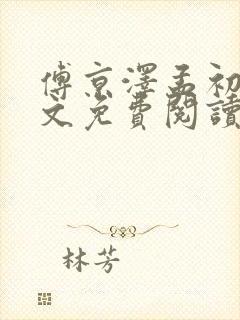 傅京澤孟初
文免費閱讀
林芳